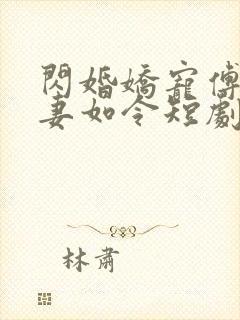 閃婚嬌寵傅
妻如令短劇
林肅